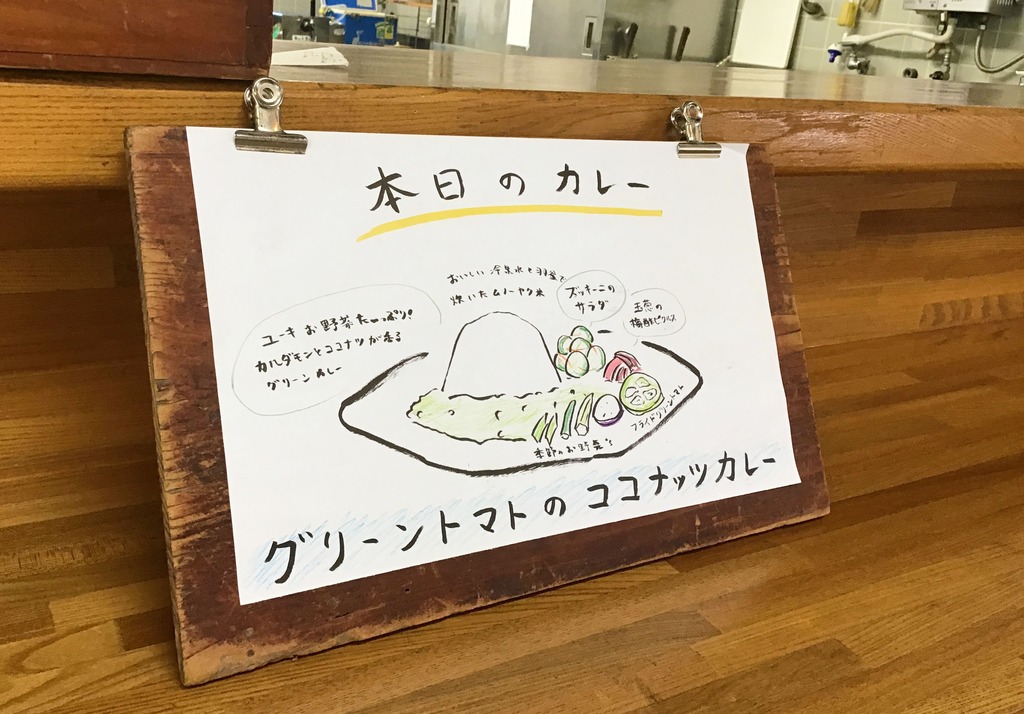 本日のカレー
おいしい冷泉水と羽釜で
炊いたムノーヤク米
ズッキーニの
サラダ
玉葱の
梅酢ピクルス
ユーキ お野菜たーっぷり!
カルダモンとココナツが香る
グリーンカレー
フライドグリーントマト
季節のお野菜's
グリーントマトの ココナッツカレー